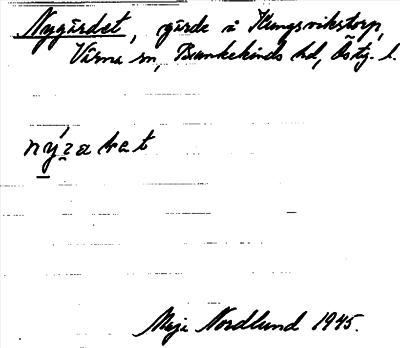 Nygärdet, gärde i Kungsvikstorp,
Vårna sn, Bankekinds hd, Östg. l.
Maja Nordlund 1945.